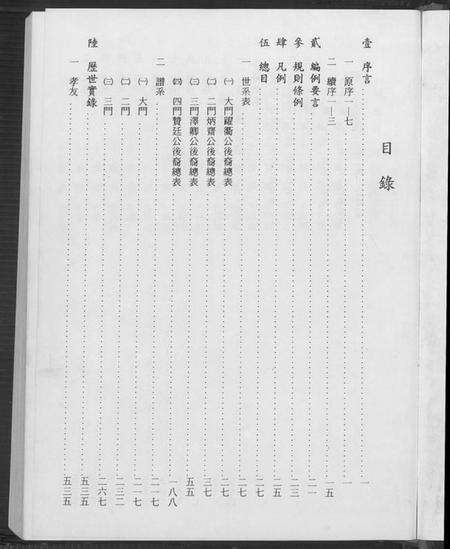 目錄
壹 序言
一 原序一—七……一
二 續序一—三……一五
貳 編例要言……二一
參 規則條例……二三
肆 凡例……二五
伍 總目……二七
一 世系表……二七
㈠ 大門耀衢公後裔總表……二七
㈡ 二門炳齋公後裔總表……三七
㈢ 三門澤卿公後裔總表……五五
㈣ 四門贊廷公後裔總表……一八八
二 譜系……二一七
㈠ 大門……二一七
㈡ 二門……二三二
㈢ 三門……二六七
陸 歷世實錄……五三五
一 孝友……五三五